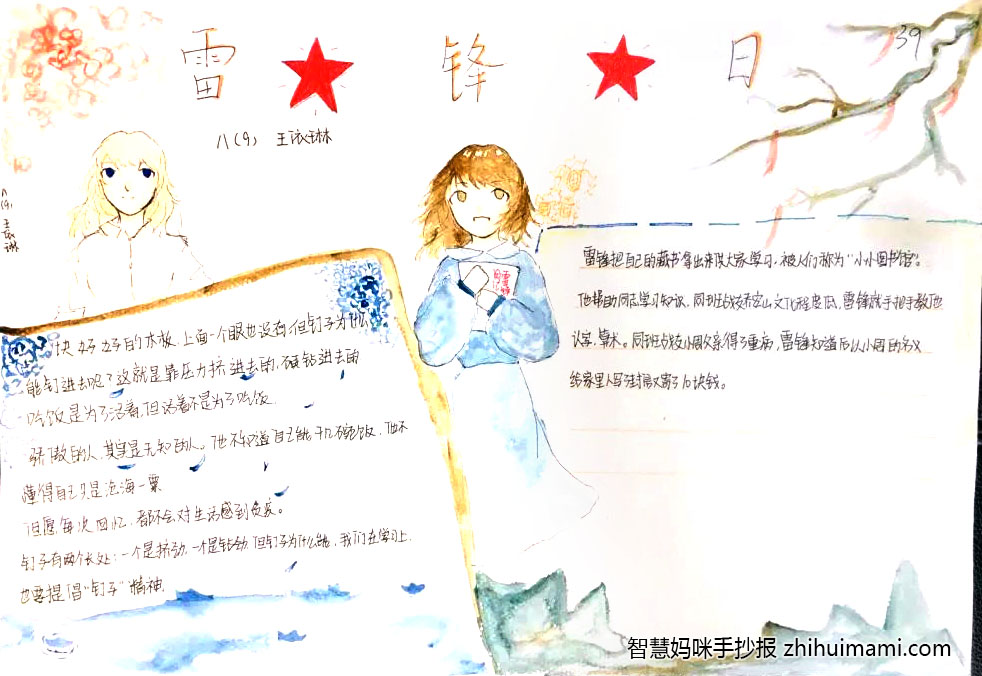 雷 锋 日
39
八(9) 王依琳
八(9) 王依琳
一块好好的木板,上面一个眼也没有,但钉子为什么
能钉进去呢?这就是靠压力挤进去的,硬钻进去的
吃饭是为了活着,但活着不是为了吃饭.
骄傲的人,其实是无知的人。他不知道自己能干几碗饭,他不
懂得自己只是沧海一粟
但愿每次回忆,都不会对生活感到负疚。
钉子有两个长处:一个是挤劲,一个是钻劲,但钉子为什么能,我们在学习上,
也要提倡“钉子”精神.
雷锋把自己的藏书拿出来供大家学习,被人们称为“小小图书馆”。
他帮助同志学习知识,同班战友乔安山文化程度低,雷锋就手把手教他
认字,算术。同班战友小周父亲得了重病,雷锋知道后以小周的名义
给家里人写了封信又寄了10块钱。
智慧妈咪手抄报 zhihuimami.com